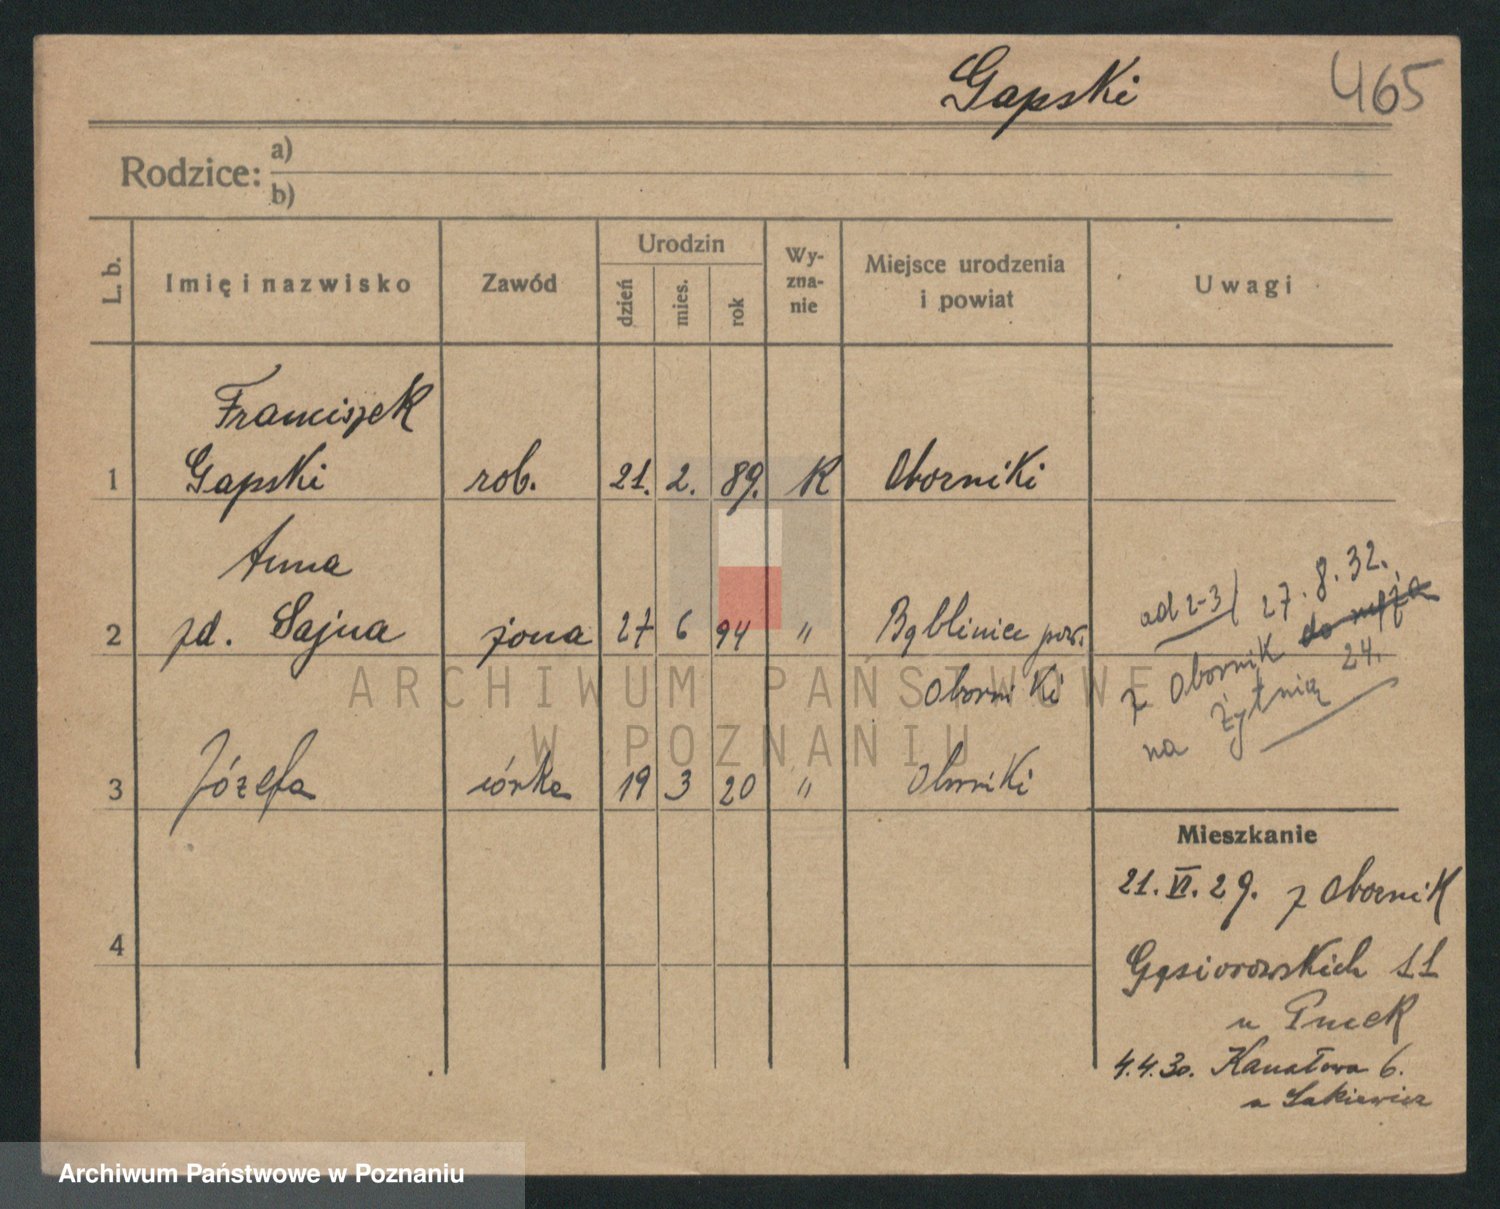 Gapski 465
Rodzice: a)
b)
L. b. Imię i nazwisko Zawód Urodzin dzień mies. rok Wyznanie Miejsce urodzenia i powiat Uwagi
Franciszek
1 Gapski rob. 21. 2. 89. K Oborniki
Anna
2 zd. Sajna żona 27 6 94 " Bąblinice pow.
Oborniki
ad 2-3/ 27. 8. 32.
z Obornik do męża
na Żytnią 24.
3 Józefa córka 19 3 20 " Oborniki
Mieszkanie
21. VI. 29. z Obornik
4
Gąsiorowskich 11
u Pucek
4.4.30. Kanałowa 6.
u Łukiewicz
ARCHIWUM PAŃSTWOWE
W POZNANIU
Archiwum Państwowe w Poznaniu